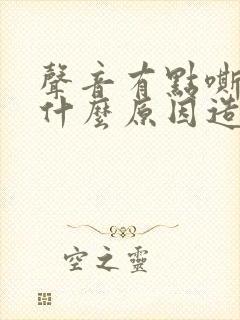 聲音有點嘶
什麼原因造
空之靈